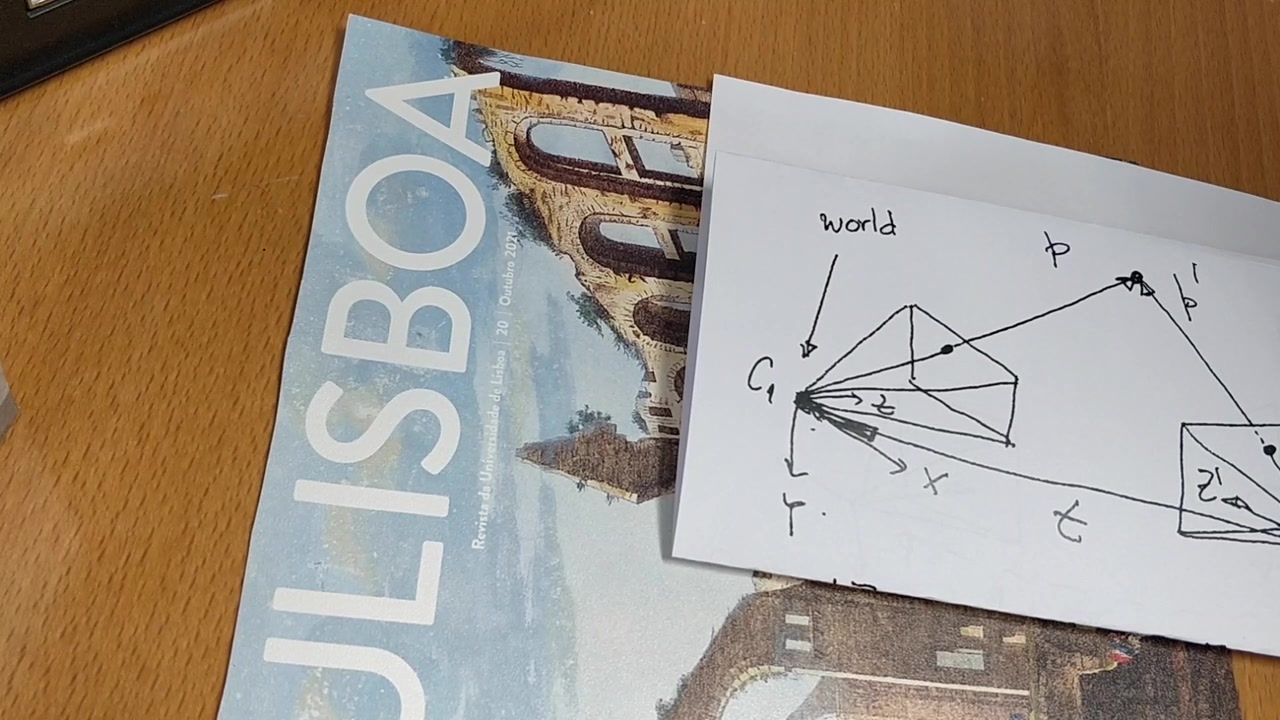 ULISBOA
Revista da Universidade de Lisboa | 20 | Outubro 2021
world
p
p'
C1
z
x
Y
t
z'